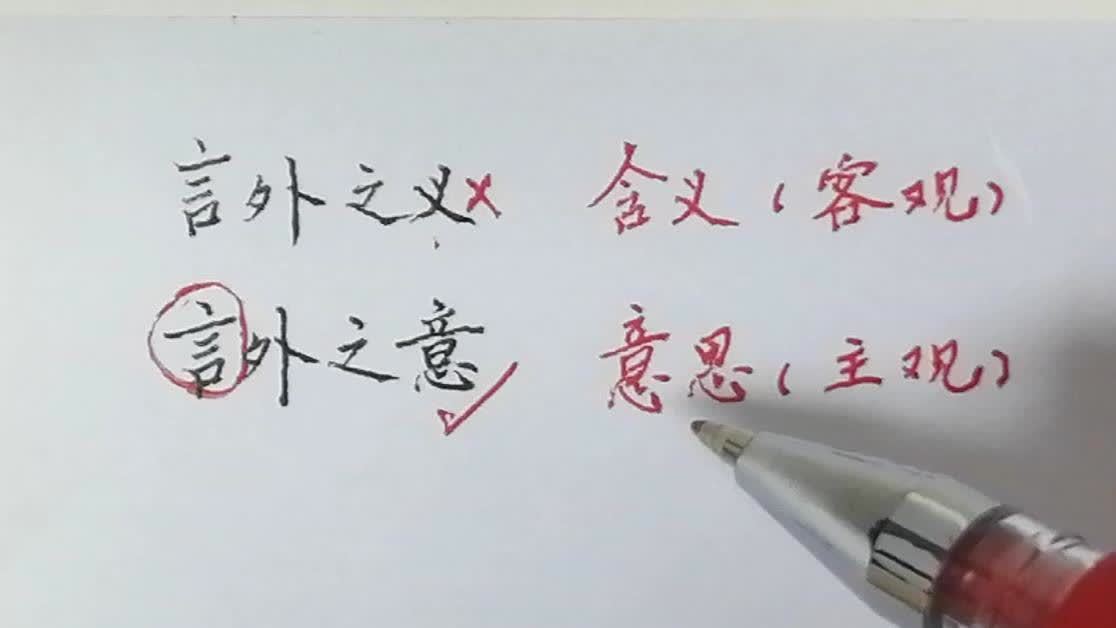 言外之义× 含义（客观）
言外之意✓ 意思（主观）